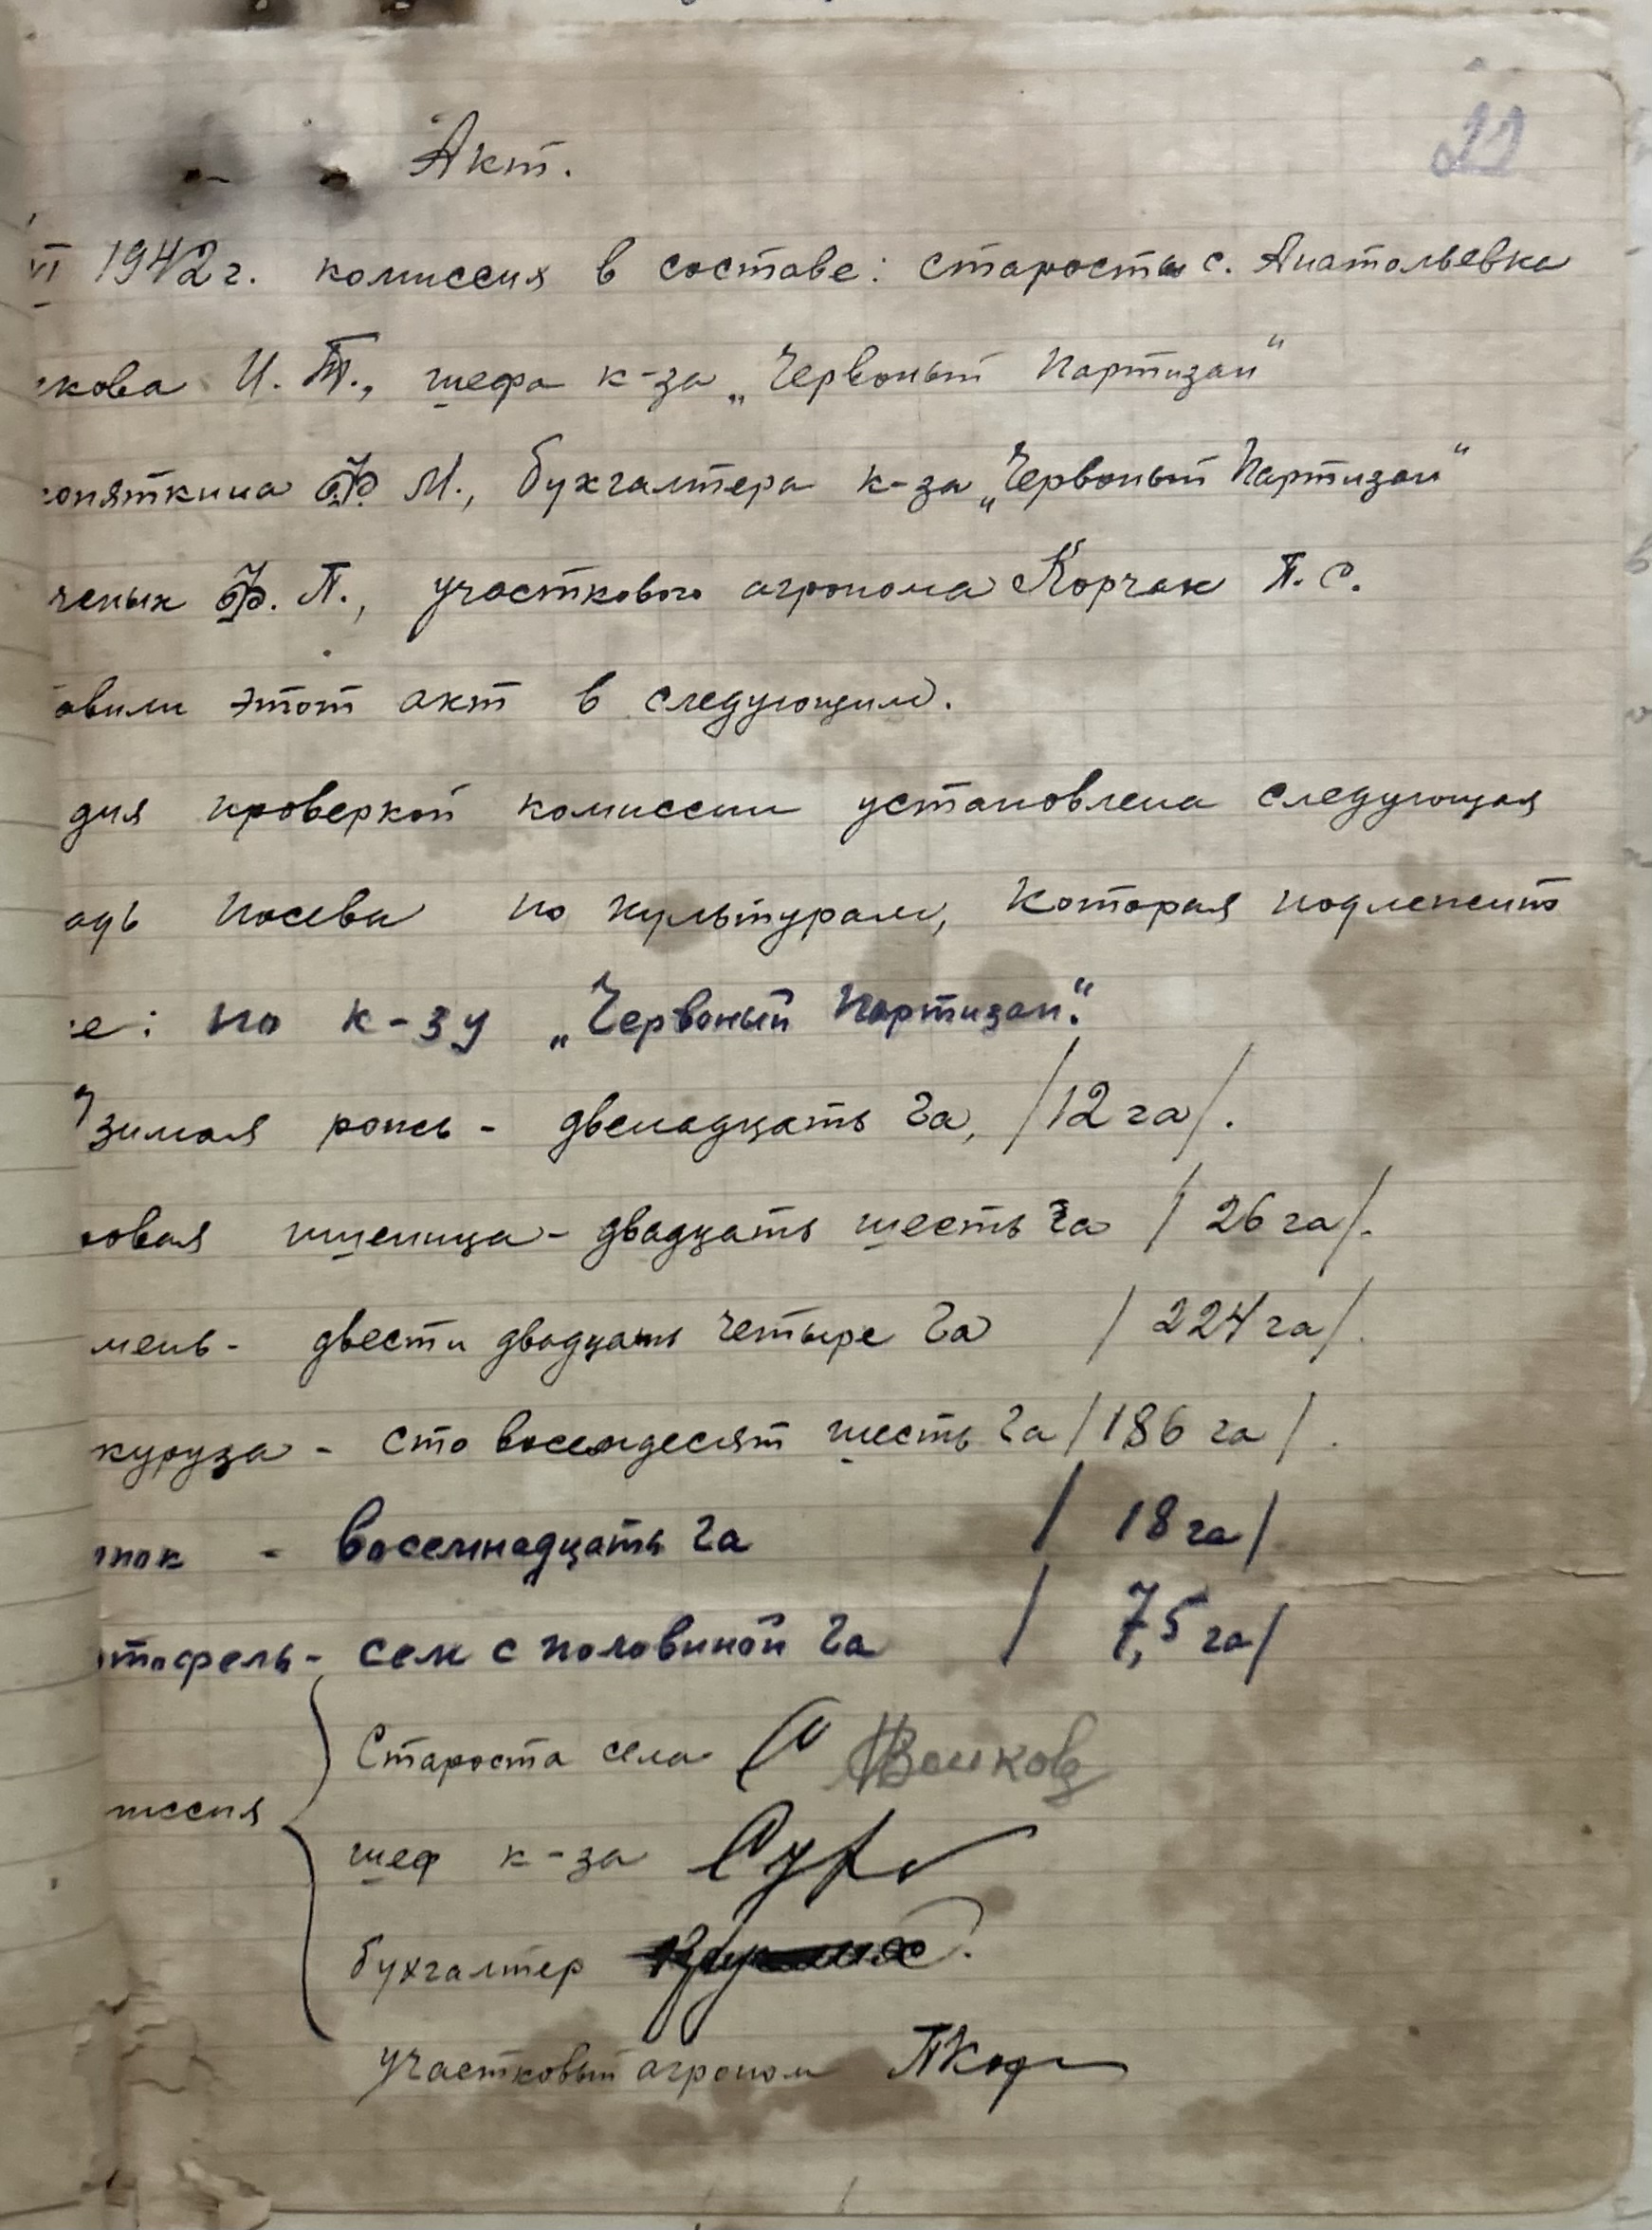 22
Акт.
VI 1942 г. комиссия в составе: старосты с. Анатольевка
кова И. Т., шефа к-за „Червоный Партизан“
оняткина Ф. М., бухгалтера к-за „Червоный Партизан“
ченых Ф. П., участкового агронома Корчак П. С.
овили этот акт в следующим.
дня проверкой комиссии установлена следующая
адь посева по культурам, которая подлежит
е: по к-зу „Червоный Партизан“.
зимая рожь - двенадцать га, /12 га/.
ровая пшеница - двадцать шесть га /26 га/.
мень - двести двадцать четыре га /224 га/.
куруза - сто восемдесят шесть га /186 га/.
ток - восемнадцать га /18 га/
тофель - сем с половиной га /7,5 га/
Староста села
миссия
шеф к-за
бухгалтер
участковый агроном ПКор